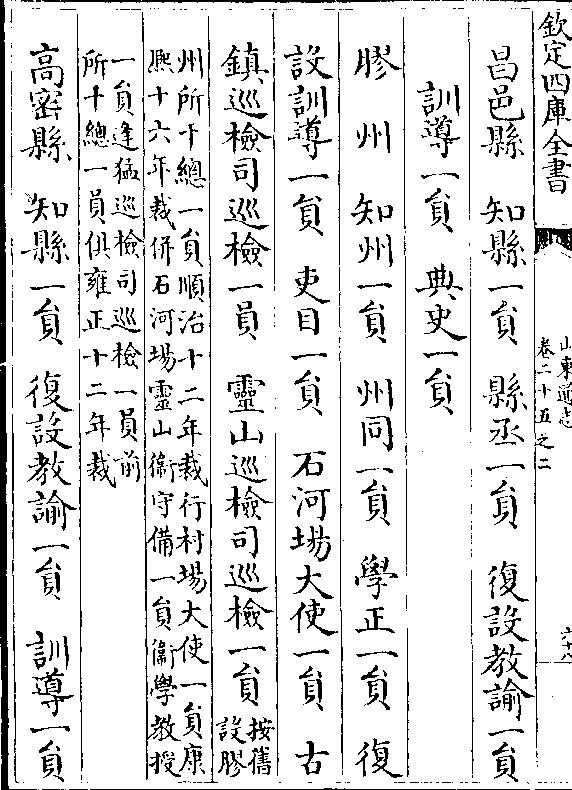 欽定四庫全書
山東通志
卷二十五之二
六十八
昌邑縣 知縣一員 縣丞一員 復設教諭一員
訓導一員 典史一員
膠州 知州一員 州同一員 學正一員 復
設訓導一員 吏目一員 石河場大使一員 古
鎮巡檢司巡檢一員 靈山巡檢司巡檢一員
按舊
設膠
州所千總一員順治十二年裁行村場大使一員康
熙十六年裁併石河場靈山衞守備一員衞學教授
一員逢猛巡檢司巡檢一員前
所千總一員俱雍正十二年裁
高密縣 知縣一員 復設教諭一員 訓導一員